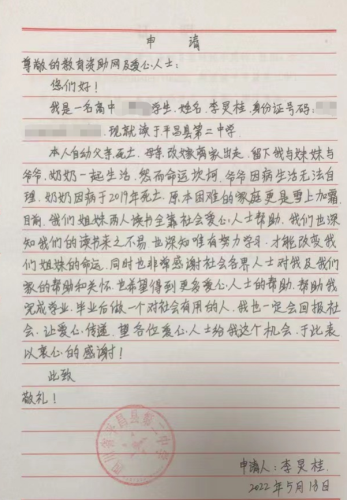 申请
尊敬的教育资助网及爱心人士：
您们好！
我是一名高中学生，姓名：李旻桂，身份证号码：
现就读于平昌县第二中学。
本人自幼父亲死亡，母亲改嫁离家出走，留下我与妹妹与
爷爷、奶奶一起生活，然而命运坎坷，爷爷因病生活无法自
理，奶奶因病于2019年死亡，原本困难的家庭更是雪上加霜，
目前，我们姐妹两人读书全靠社会爱心人士帮助，我们也深
知我们的读书来之不易，也深知唯有努力学习，才能改变我
们姐妹的命运，同时也非常感谢社会各界人士对我及我们
家的帮助和关怀，也希望得到更多爱心人士的帮助，帮助我
完成学业，毕业后做一个对社会有用的人，我也一定会回报社
会，让爱心传递，望各位爱心人士给我这个机会，于此表
以衷心的感谢！
此致
敬礼！
四川省平昌县第二中学
申请人：李旻桂
2022年5月18日